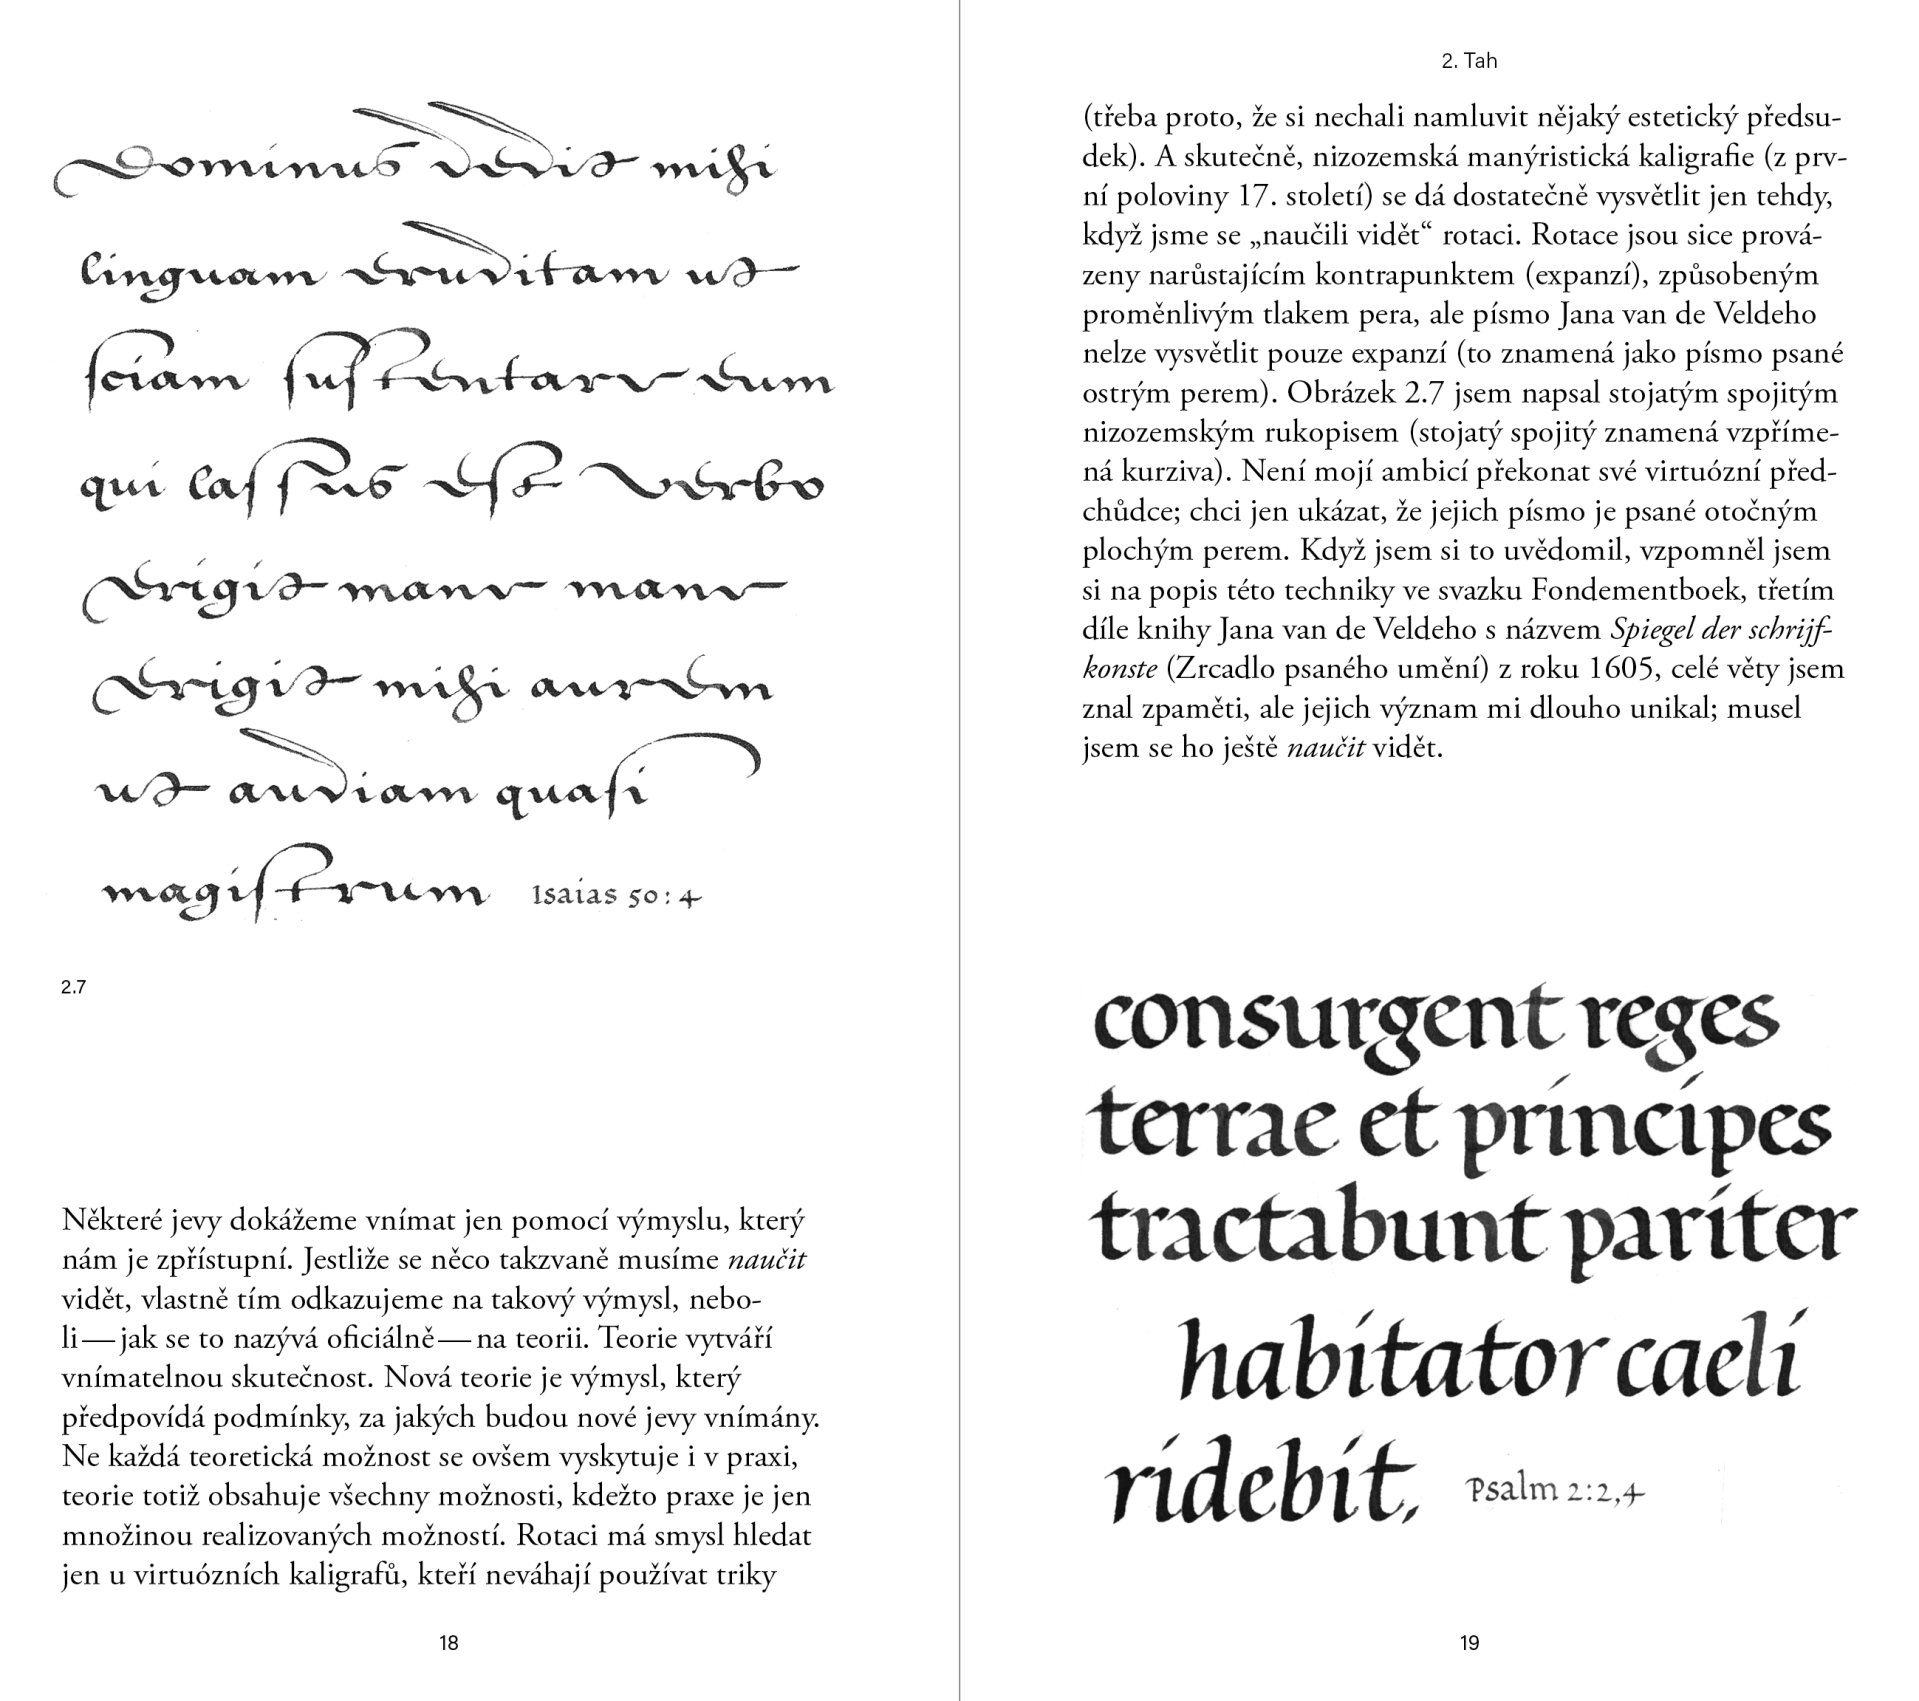 Dominus dedit mihi
linguam eruditam ut
sciam sustentare eum
qui lassus est verbo
erigit mane mane
erigit mihi aurem
ut audiam quasi
magistrum Isaias 50:4
2.7
Některé jevy dokážeme vnímat jen pomocí výmyslu, který
nám je zpřístupní. Jestliže se něco takzvaně musíme naučit
vidět, vlastně tím odkazujeme na takový výmysl, nebo-
li — jak se to nazývá oficiálně — na teorii. Teorie vytváří
vnímatelnou skutečnost. Nová teorie je výmysl, který
předpovídá podmínky, za jakých budou nové jevy vnímány.
Ne každá teoretická možnost se ovšem vyskytuje i v praxi,
teorie totiž obsahuje všechny možnosti, kdežto praxe je jen
množinou realizovaných možností. Rotaci má smysl hledat
jen u virtuózních kaligrafů, kteří neváhají používat triky
18
2. Tah
(třeba proto, že si nechali namluvit nějaký estetický předsu-
dek). A skutečně, nizozemská manýristická kaligrafie (z prv-
ní poloviny 17. století) se dá dostatečně vysvětlit jen tehdy,
když jsme se „naučili vidět“ rotaci. Rotace jsou sice prová-
zeny narůstajícím kontrapunktem (expanzí), způsobeným
proměnlivým tlakem pera, ale písmo Jana van de Veldeho
nelze vysvětlit pouze expanzí (to znamená jako písmo psané
ostrým perem). Obrázek 2.7 jsem napsal stojatým spojitým
nizozemským rukopisem (stojatý spojitý znamená vzpříme-
ná kurziva). Není mojí ambicí překonat své virtuózní před-
chůdce; chci jen ukázat, že jejich písmo je psané otočným
plochým perem. Když jsem si to uvědomil, vzpomněl jsem
si na popis této techniky ve svazku Fondementboek, třetím
díle knihy Jana van de Veldeho s názvem Spiegel der schrijf-
konste (Zrcadlo psaného umění) z roku 1605, celé věty jsem
znal zpaměti, ale jejich význam mi dlouho unikal; musel
jsem se ho ještě naučit vidět.
consurgent reges
terrae et principes
tractabunt pariter
habitator caeli
ridebit, Psalm 2:2,4
19